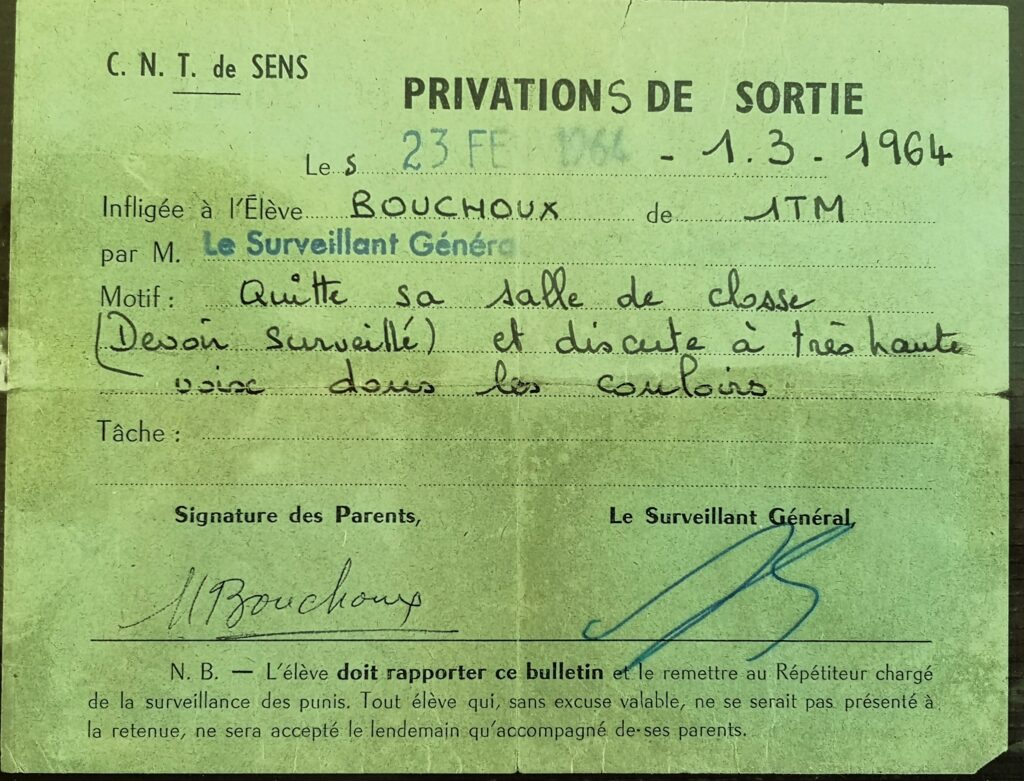 C. N. T. de SENS
PRIVATIONS DE SORTIE
Le s 23 FE 1964 - 1.3.1964
Infligée à l'Élève BOUCHOUX de 1TM
par M. Le Surveillant Généra
Motif : Quitte sa salle de classe
(Devoir surveillé) et discute à très haute
voix dans les couloirs
Tâche :
Signature des Parents, Le Surveillant Général,
M Bouchoux
N. B. — L'élève doit rapporter ce bulletin et le remettre au Répétiteur chargé
de la surveillance des punis. Tout élève qui, sans excuse valable, ne se serait pas présenté à
la retenue, ne sera accepté le lendemain qu'accompagné de ses parents.